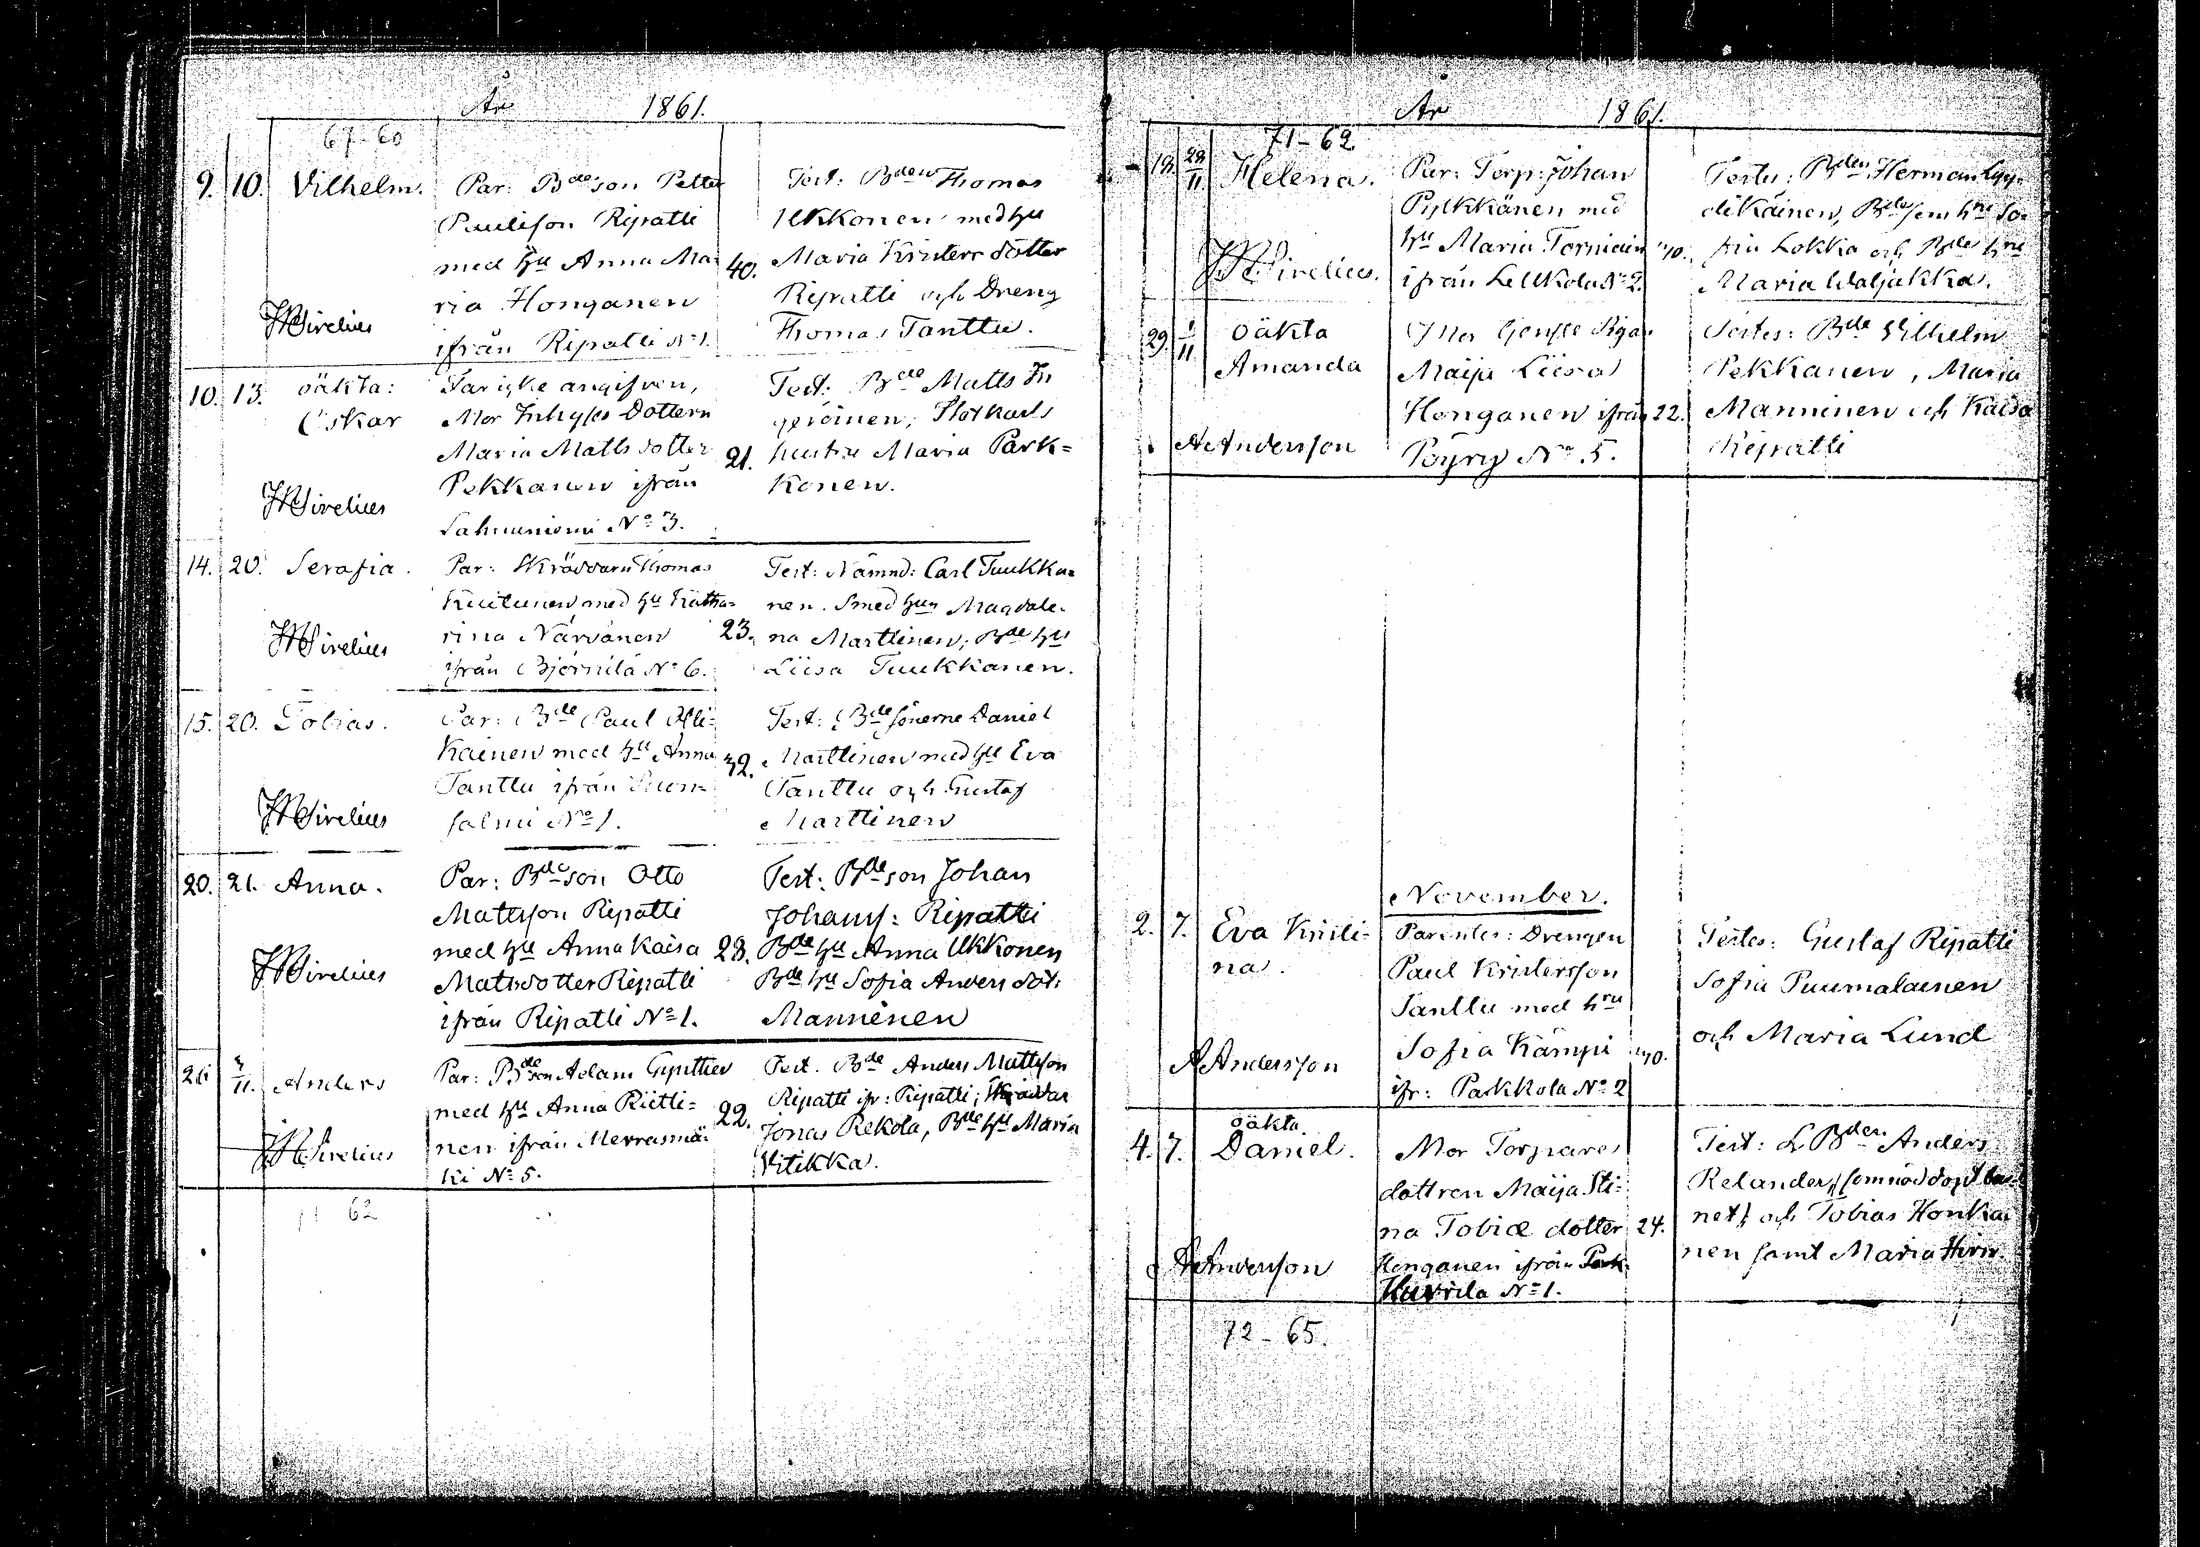 År 1861.
67-60
9. 10. Vilhelm. Par: Bdeson Petter
Paulsson Ripatti
med hu Anna Ma
ria Honganen
ifrån Ripatti No 1.
40.
Test: Bden Thomas
Ukkonen med hu
Maria Kristersdotter
Ripatti och Dreng
Thomas Tanttu.
HSirelius
10. 13. oäkta:
Oskar
Far icke angifven,
Mor Inhyses Dottern
Maria Matts dotter
Pekkanen ifrån
Sahuniemi No 3.
21.
Test: Bde Matts In
geröinen,
hustru Maria Park=
konen.
HSirelius
14. 20. Serafia.
Par: Skräddarn Thomas
Kuitunen med hu Katha=
rina Närvänen
ifrån Björnilä No 6.
23.
Test: Nämnd: Carl Tuukka=
nen. Smed hun Magdale-
na Marttinen; Bde hu
Liisa Tuukkanen.
HSirelius
15. 20. Tobias.
Par: Bde Paul Olli=
kainen med hu Anna
Tanttu ifrån Suon=
salmi No 1.
32.
Test: Bde sönerne Daniel
Marttinen med hu Eva
Tanttu och Gustaf
Marttinen
HSirelius
20. 21. Anna.
Par: Bdeson Otto
Mattsson Ripatti
med hu Anna Kaisa
Mattsdotter Ripatti
ifrån Ripatti No 1.
23.
Test: Bdeson Johan
Johanss: Ripatti
Bde hu Anna Ukkonen
Bde hu Sofia Anders dot:
Manninen
HSirelius
26 3/11. Anders
Par: Bdeson Adam
med hu Anna Rietti=
nen ifrån Merrasmä=
ki No 5.
22.
Test. Bde Anders Mattsson
Ripatti ifr: Ripatti; Skräddar
Jonas Rekola, Bde hu Maria
Vitikka.
HSirelius
62
År 1861.
71-62
28/11 Helena.
Par: Torp: Johan
Pylkkänen med
hu Maria Torniain
ifrån Lellkola No 2.
40.
Testes: Bden Herman Lyy-
dikäinen, Bde hru So-
fia Lokka och Bde hru
Maria Waljakka.
HSirelius.
29. 1/11 oäkta
Amanda
Maija Liisa
Honganen ifrån
Pöyry No 5.
22.
Testes: Bde Vilhelm
Pekkanen, Maria
Manninen och Kaisa
Ripatti
AAndersson
November.
2. 7. Eva Kristi=
na.
Parentes: Drengen
Paul Kristersson
Tanttu med hru
Sofia Kämpi
ifr: Parkkola No 2
40.
Testes: Gustaf Ripatti
Sofia Puumalainen
och Maria Lund
AAndersson
4. 7. oäkta
Daniel.
Mor Torpare
dottren Maija Sti=
na Tobiæ dotter
Honganen ifrån
Kuvrila No 1.
24.
Test: L Bden Anders
Relander,
net) och Tobias Honka
nen samt Maria
AAndersson
72-65.